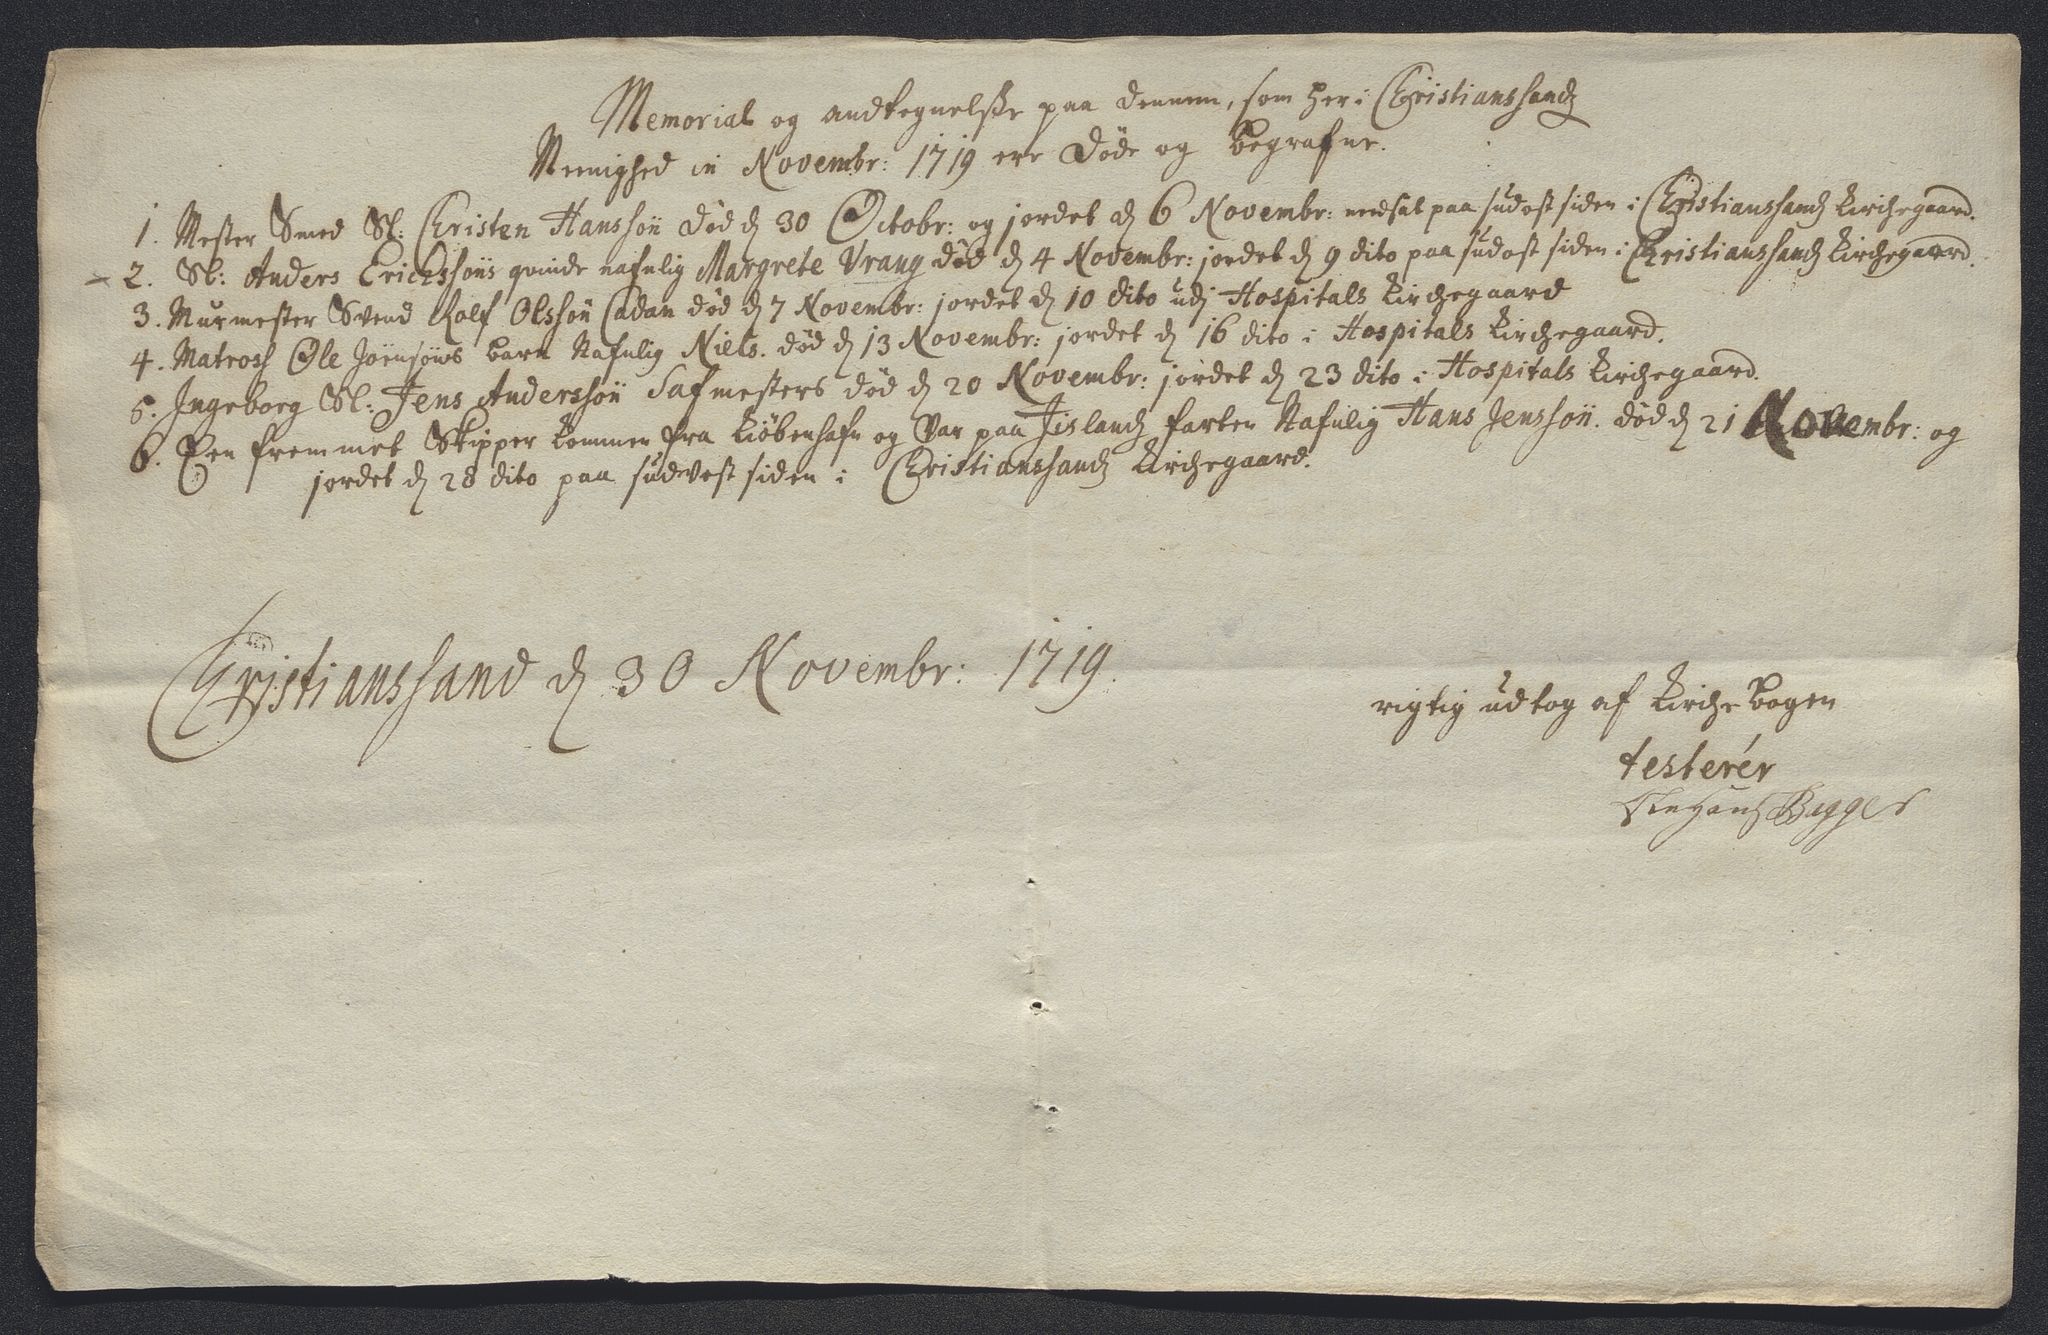 Memorial og andtegnelsse paa dennem, som her i Christianssandz
Menighed in Novembr: 1719 ere døde og begrafne.
1. Mester Smed Sl: Christen Hanssøn død d 30 Octobr: og jordet d 6 Novembr: nedsat paa sudost siden i Christianssandz Kirchegaard.
2. Sl: Anders Erickssøns qvinde nafnlig Margrete Vrang død d 4 Novembr: jordet d 9 dito paa sudost siden i Christianssandz Kirchegaard.
3. Murmester Svend Rolf Olssøn død d 7 Novembr: jordet d 10 dito udj Hospitals Kirchegaard
4. Matross Ole Jørnsøns barn Nafnlig Niels. død d 13 Novembr: jordet d 16 dito i Hospitals Kirchegaard.
5. Ingeborg Sl: Jens Anderssøn død d 20 Novembr: jordet d 23 dito i Hospitals Kirchegaard.
6. Een fremmet Skipper kommen fra Kiøbenhafn og var paa Jislandz farten Nafnlig Hans Jenssøn. død d 21 Novembr: og
jordet d 28 dito paa sudvest siden i Christianssandz Kirchegaard.
Christianssand d 30 Novembr: 1719.
rigtig udtog af Kirche Bogen
testerér
Bagger